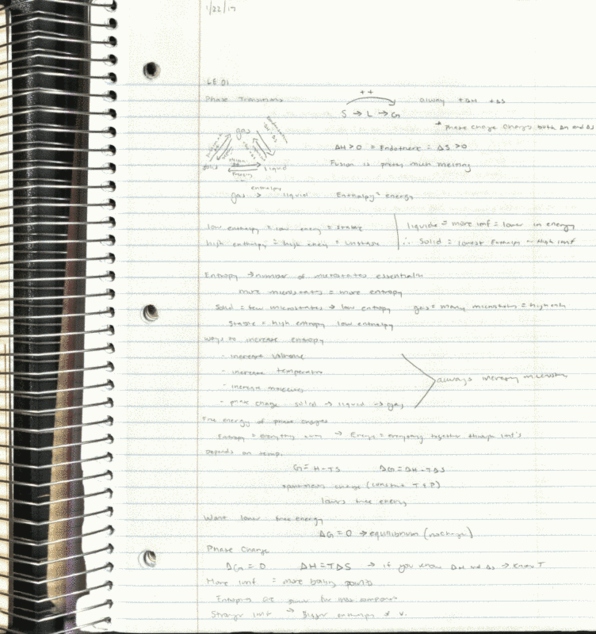 1/22/17
LE 01
Phase Transitions
++
always +ΔH +ΔS
S → L → G
* Phase change changes both ΔH and ΔS
ΔH > 0 = Endotherm = ΔS > 0
gas
liquid
Fusion is pretty much melting
enthalpy
gas → liquid Enthalpy = energy
low enthalpy = low energy = stable
liquids = more imf = lower in energy
high enthalpy = high energy = unstable
∴ Solid = lowest high imf
Entropy → number of microstates essentially
more microstates = more entropy
Solid = few microstates → low entropy gas = many microstates = high
Stable = high entropy low enthalpy
Ways to increase entropy
- increase volume
- increase temperature
- increase molecules
- phase change solid → liquid → gas
always increasing microstates
Free energy of phase changes
Entropy = everything → Energy = everything together through imf's
Depends on temp.
G = H - TS ΔG = ΔH - TΔS
spontaneous change (constant T & P)
lowers free energy
Want lower free energy
ΔG = 0 → equilibrium
Phase Change
ΔG = 0 ΔH = TΔS → if you know ΔH and ΔS → know T
More imf = more boiling points
Stronger imf → Bigger